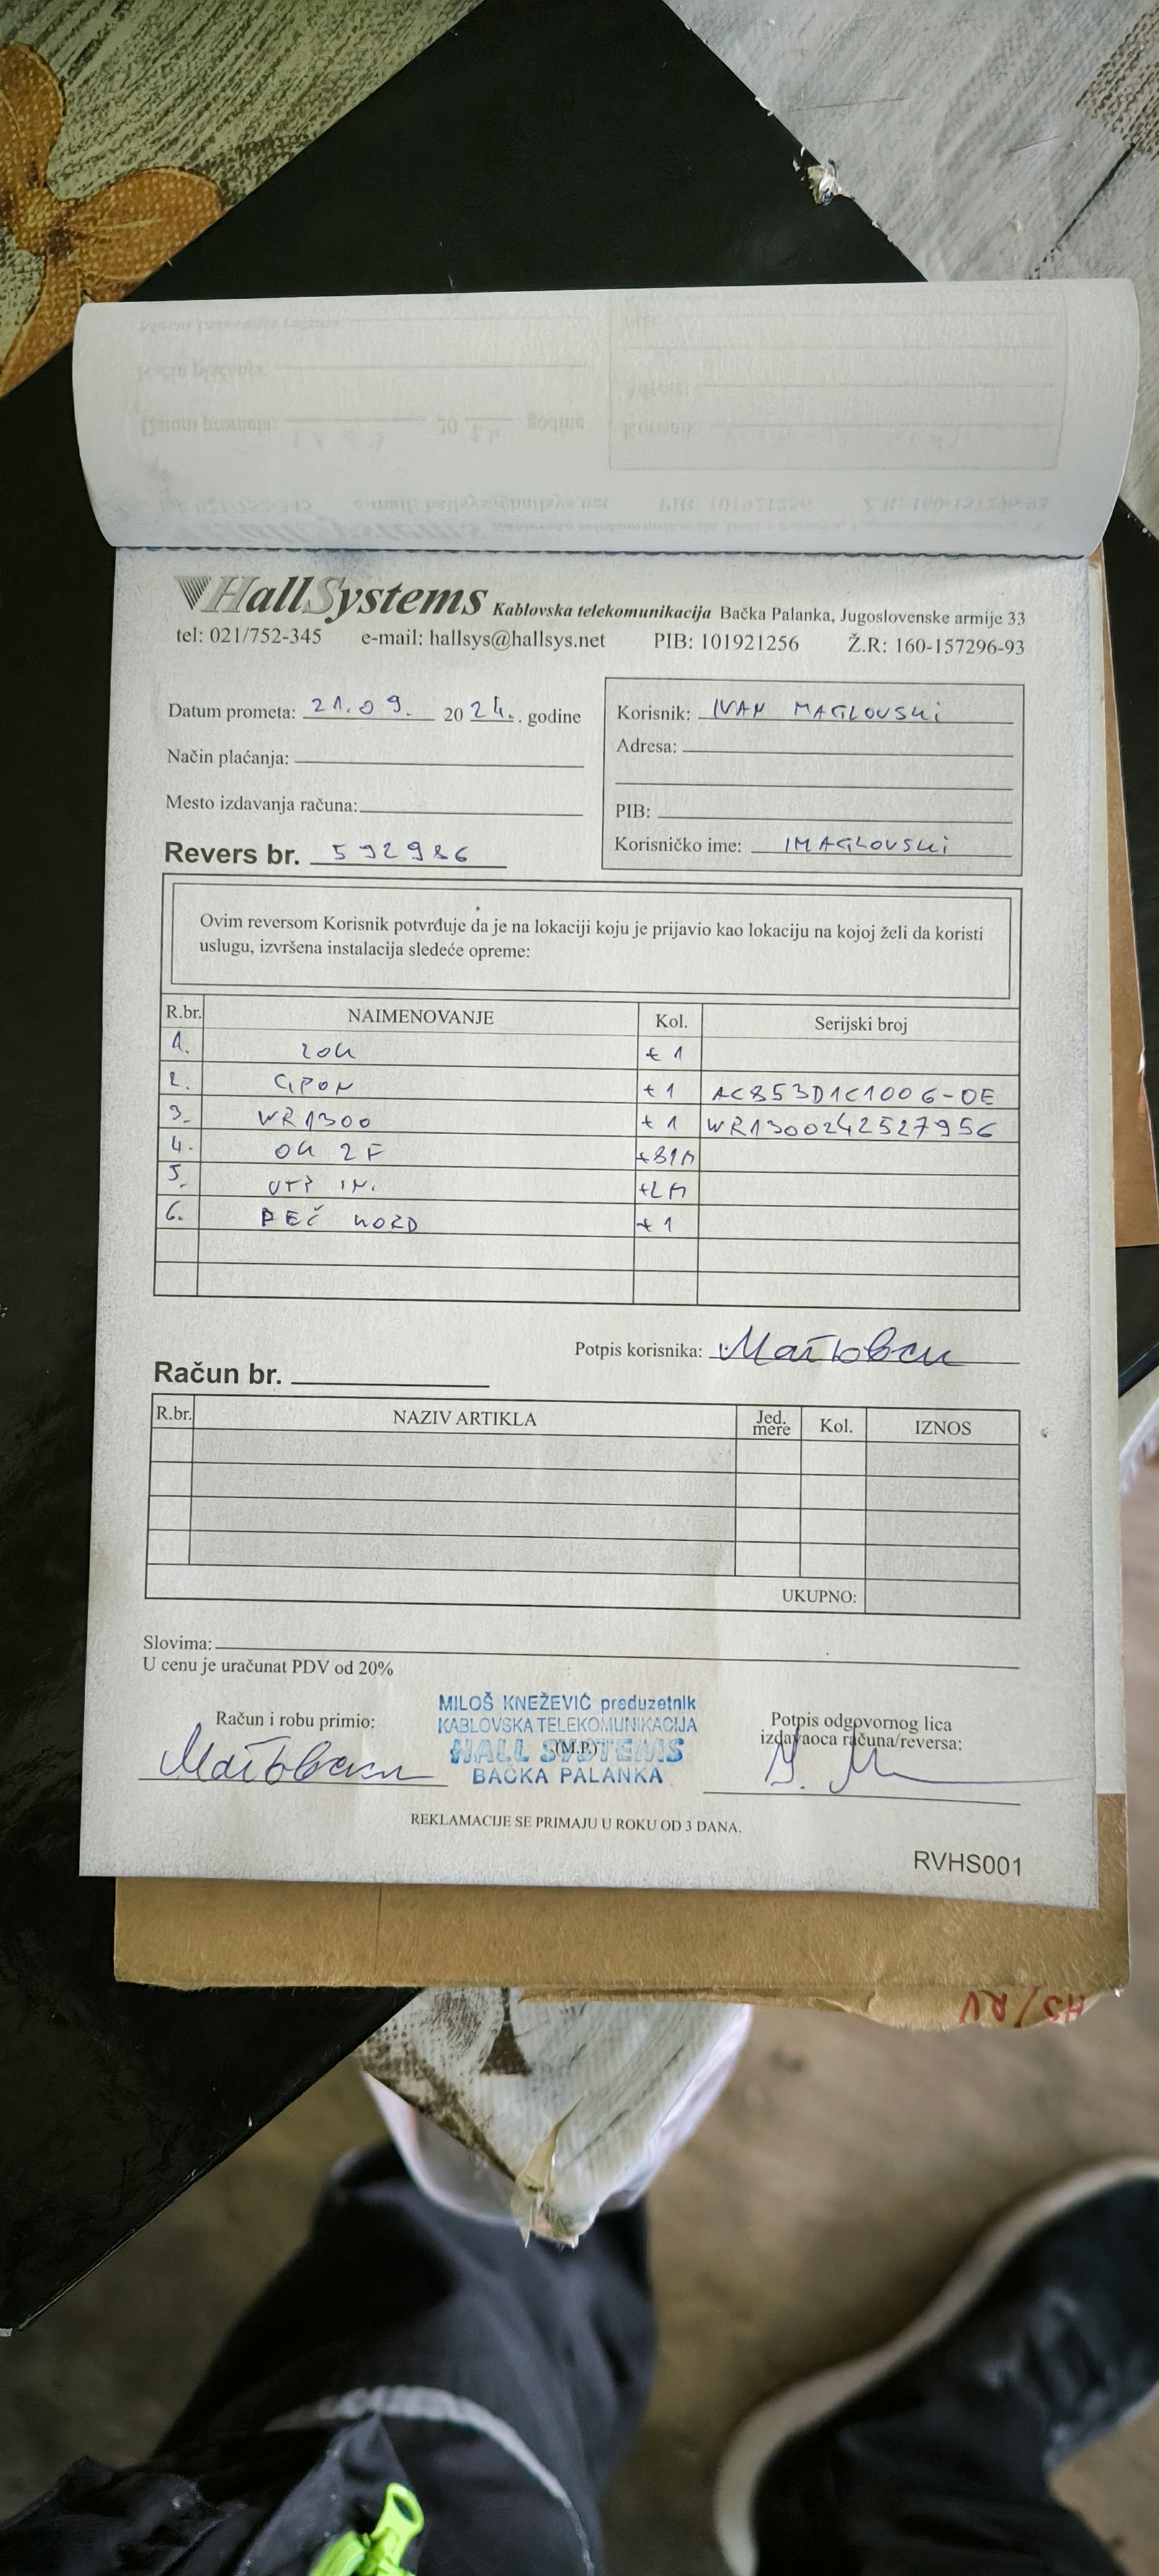 HallSystems Kablovska telekomunikacija Bačka Palanka, Jugoslovenske armije 33
tel: 021/752-345 e-mail: hallsys@hallsys.net PIB: 101921256 Ž.R: 160-157296-93
Datum prometa: 21.09. 2024. godine
Način plaćanja:
Mesto izdavanja računa:
Revers br. 592986
Korisnik: IVAN MAGLOVSKI
Adresa:
PIB:
Korisničko ime: IMAGLOVSKI
Ovim reversom Korisnik potvrđuje da je na lokaciji koju je prijavio kao lokaciju na kojoj želi da koristi
uslugu, izvršena instalacija sledeće opreme:
R.br. NAIMENOVANJE Kol. Serijski broj
1. ZOK +1
2. GPON +1 AC853D1C1006-0E
3. WR1300 +1 WR1300242527956
4. OK 2F +81M
5. UTP IN. +2M
6. PEČ KORD +1
Potpis korisnika:
Račun br.
R.br. NAZIV ARTIKLA Jed. mere Kol. IZNOS
UKUPNO:
Slovima:
U cenu je uračunat PDV od 20%
Račun i robu primio:
MILOŠ KNEŽEVIĆ preduzetnik
KABLOVSKA TELEKOMUNIKACIJA
HALL SYSTEMS
(M.P.)
BAČKA PALANKA
Potpis odgovornog lica
izdavaoca računa/reversa:
REKLAMACIJE SE PRIMAJU U ROKU OD 3 DANA.
RVHS001
HS/RV